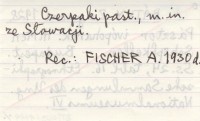 Czerpaki past., m.in.
ze Słowacji.
Rec.: FISCHER A. 1930 d.